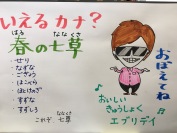 いえるカナ?
はる ななくさ
春の七草
・せり
・なずな
・ごぎょう
・はこべら
・ほとけのざ
・すずな
・すずしろ
ななくさ
これぞ 七草
おぼえてね
おいしい
きゅうしょく
エブリデイ